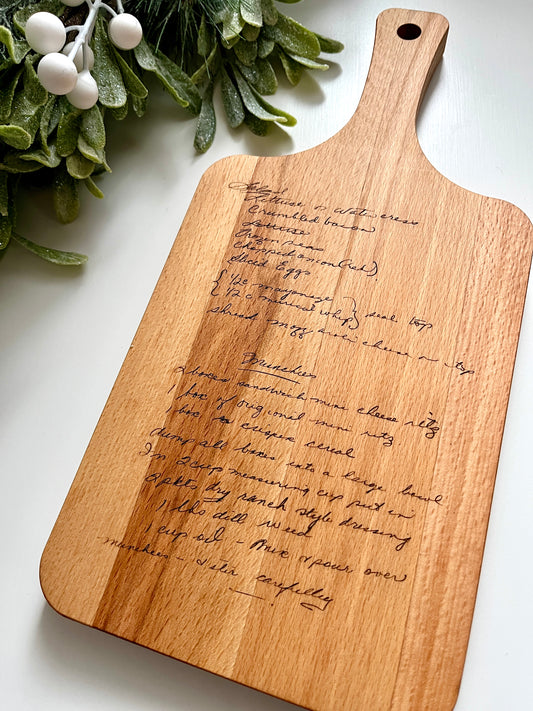 Salad
Lettuce or Watercress
Crumbled bacon
Lettuce
Frozen peas
Chopped onion (red)
Sliced Eggs
{ 1/2 c mayonaize
{ 1/2 c miracle whip } seal top
shread mozzarella cheese on top
Munchies
2 boxes sandwich mini cheese ritz
1 box of original mini ritz
1 box crispix cereal
dump all boxes into a large bowl
In 2 cup measuring cup put in
2 pkts dry ranch style dressing
1 tbs dill weed
1 cup oil - Mix & pour over
munchies - & stir carefulley